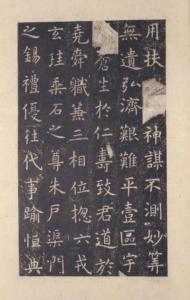 用扶神謀不測妙筭
無遺弘濟艱難平壹區宇
蒼生於仁壽致君道於
堯舜職兼三相位揔六戎
玄珪乘石之尊朱戶渠門
之錫禮優往代事踰恒典